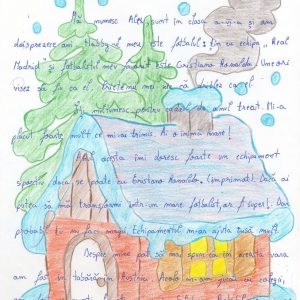 Mă numesc Alex, sunt în clasa a-VI-a și am
doisprezece ani. Hobby-ul meu este fotbalul: țin cu echipa „Real
Madrid" și fotbalistul meu favorit este Cristiano Ronaldo. Uneori
visez să fiu ca el. Prietenii mei zic că driblez ca el.
Îți mulțumesc pentru cadoul de anul trecut. Mi-a
plăcut foarte mult ce mi-ai trimis. Ai o inimă mare!
Anul acesta îmi doresc foarte un echipament
sportiv dacă se poate cu Cristiano Ronaldo. (imprimat). Dacă ai
putea să mă transformi într-un mare fotbalist, ar fi super! Dar
probabil tu nu faci magii. Echipamentul m-ar ajuta însă mult.
Despre mine pot să mai spun că în această vară
am fost în tabără în Austria. Acolo am jucat cu colegii,